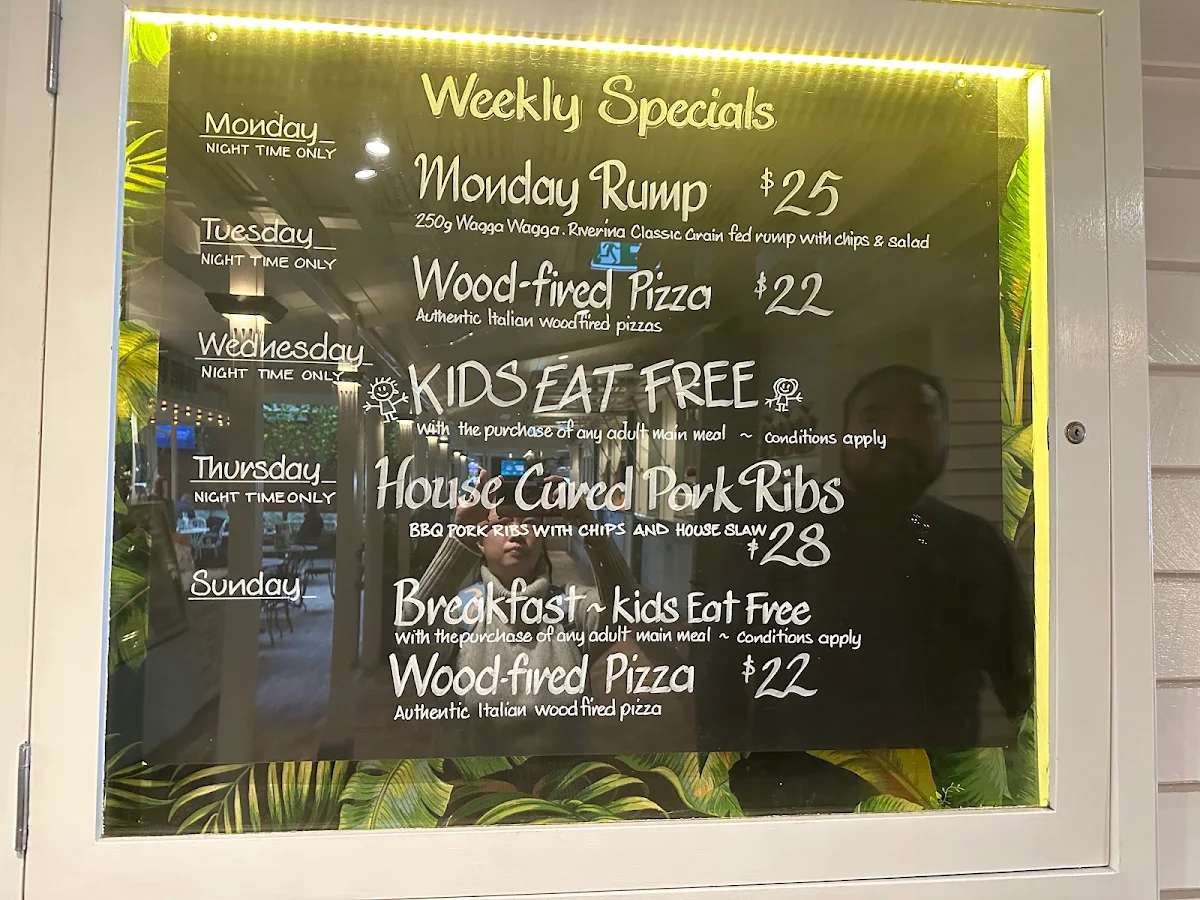 Weekly Specials
Monday
NIGHT TIME ONLY
Monday Rump $25
250g Wagga Wagga. Riverina Classic Grain fed rump with chips & salad
Tuesday
NIGHT TIME ONLY
Wood-fired Pizza $22
Authentic Italian woodfired pizzas
Wednesday
NIGHT TIME ONLY
KIDS EAT FREE
with the purchase of any adult main meal ~ conditions apply
Thursday
NIGHT TIME ONLY
House Cured Pork Ribs
BBQ PORK RIBS WITH CHIPS AND HOUSE SLAW
$28
Sunday
Breakfast ~ kids Eat Free
with the purchase of any adult main meal ~ conditions apply
Wood-fired Pizza $22
Authentic Italian woodfired pizza